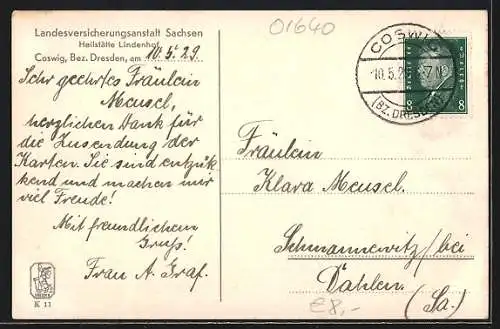 Landesversicherungsanstalt Sachsen
Heilstätte Lindenhof
Coswig, Bez. Dresden, am 10.5.29.
Sehr geehrtes Fräulein
Meusel,
herzlichen Dank für
die Zusendung der
Karten. Sie sind entzük-
kend und machen mir
viel Freude!
Mit freundlichem
Gruß!
Frau A. Graf.
K 11
01640
COSWIG
10.5.2
(BZ. DRESDEN)
8 8
Fräulein
Klara Meusel.
Schmannewitz/bei
Dahlen.
(Sa.)
€8,-